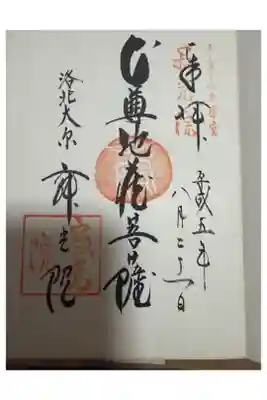 奉拝
平成五年
八月二十一日
本尊地蔵菩薩
洛北大原
寂光院